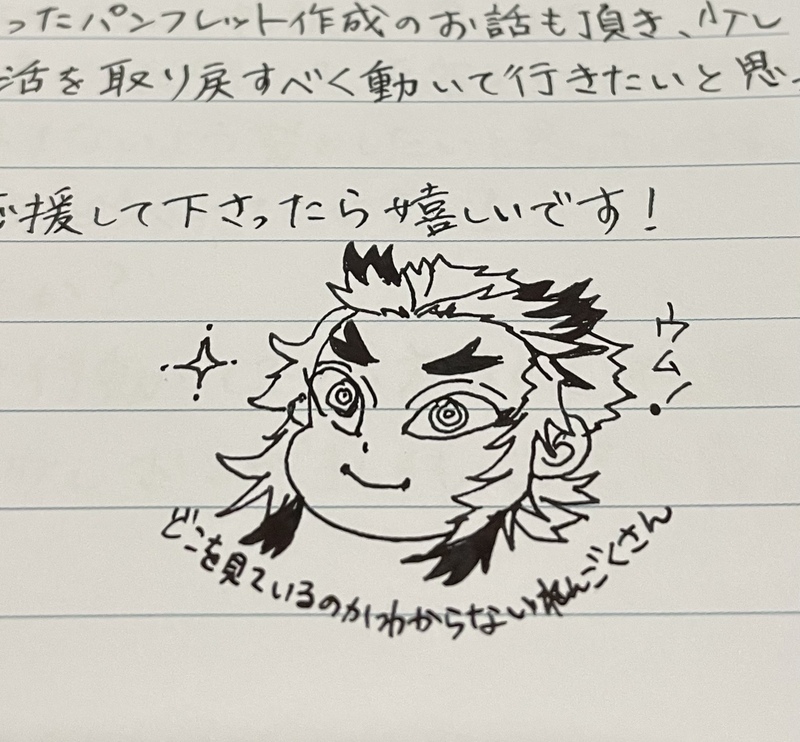 ったパンフレット作成のお話も頂き、少しレ
活を取り戻すべく動いて行きたいと思っ
応援して下さったら嬉しいです！
ウム！
どこを見ているのかわからないれんごくさん